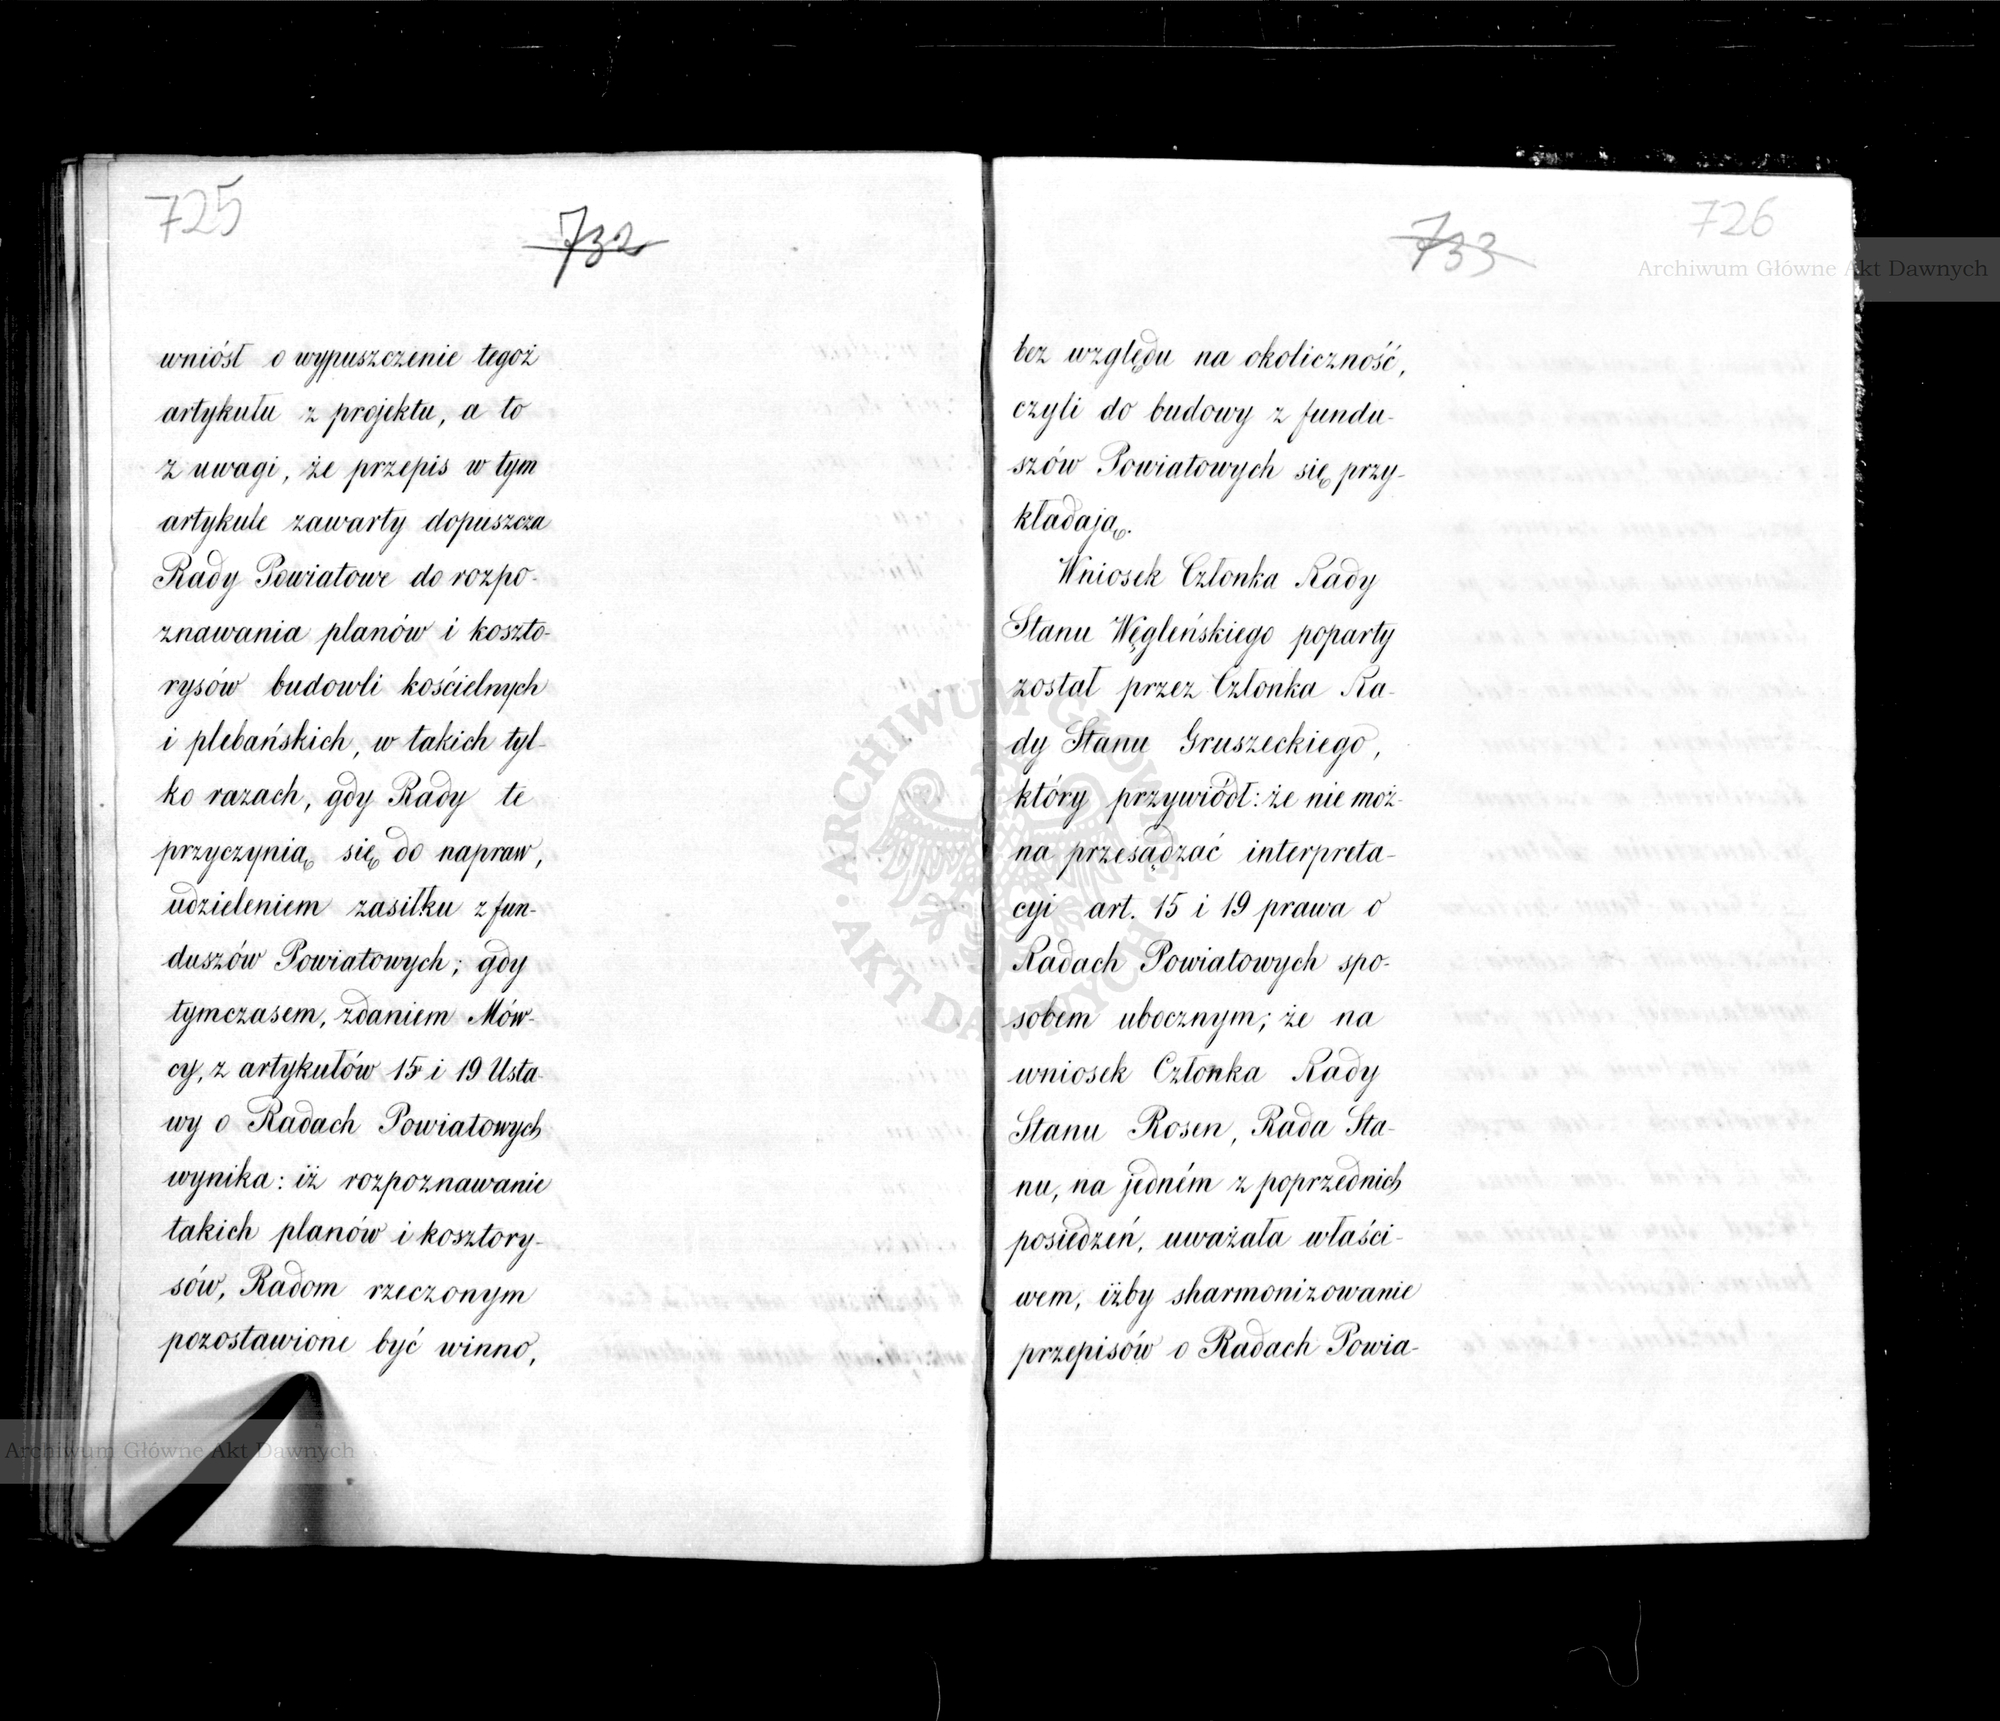 725
732
wniósł o wypuszczenie tegoż
artykułu z projektu, a to
z uwagi, że przepis w tym
artykule zawarty dopuszcza
Rady Powiatowe do rozpo-
znawania planów i koszto-
rysów budowli kościelnych
i plebańskich, w takich tyl-
ko razach, gdy Rady te
przyczynią się do napraw,
udzieleniem zasiłku z fun-
duszów Powiatowych; gdy
tymczasem, zdaniem Mów-
cy, z artykułów 15 i 19 Usta-
wy o Radach Powiatowych
wynika: iż rozpoznawanie
takich planów i kosztory-
sów, Radom rzeczonym
pozostawione być winno,
733
726
bez względu na okoliczność,
czyli do budowy z fundu-
szów Powiatowych się przy-
kładają.
Wniosek Członka Rady
Stanu Węgleńskiego poparty
został przez Członka Ra-
dy Stanu Gruszeckiego,
który przywiódł: że nie moż-
na przesądzać interpreta-
cyi art. 15 i 19 prawa o
Radach Powiatowych spo-
sobem ubocznym; że na
wniosek Członka Rady
Stanu Rosen, Rada Sta-
nu, na jedném z poprzednich
posiedzeń, uważała właści-
wem, iżby sharmonizowanie
przepisów o Radach Powia-
Archiwum Główne Akt Dawnych
ARCHIWUM GŁÓWNE AKT DAWNYCH
Archiwum Główne Akt Dawnych